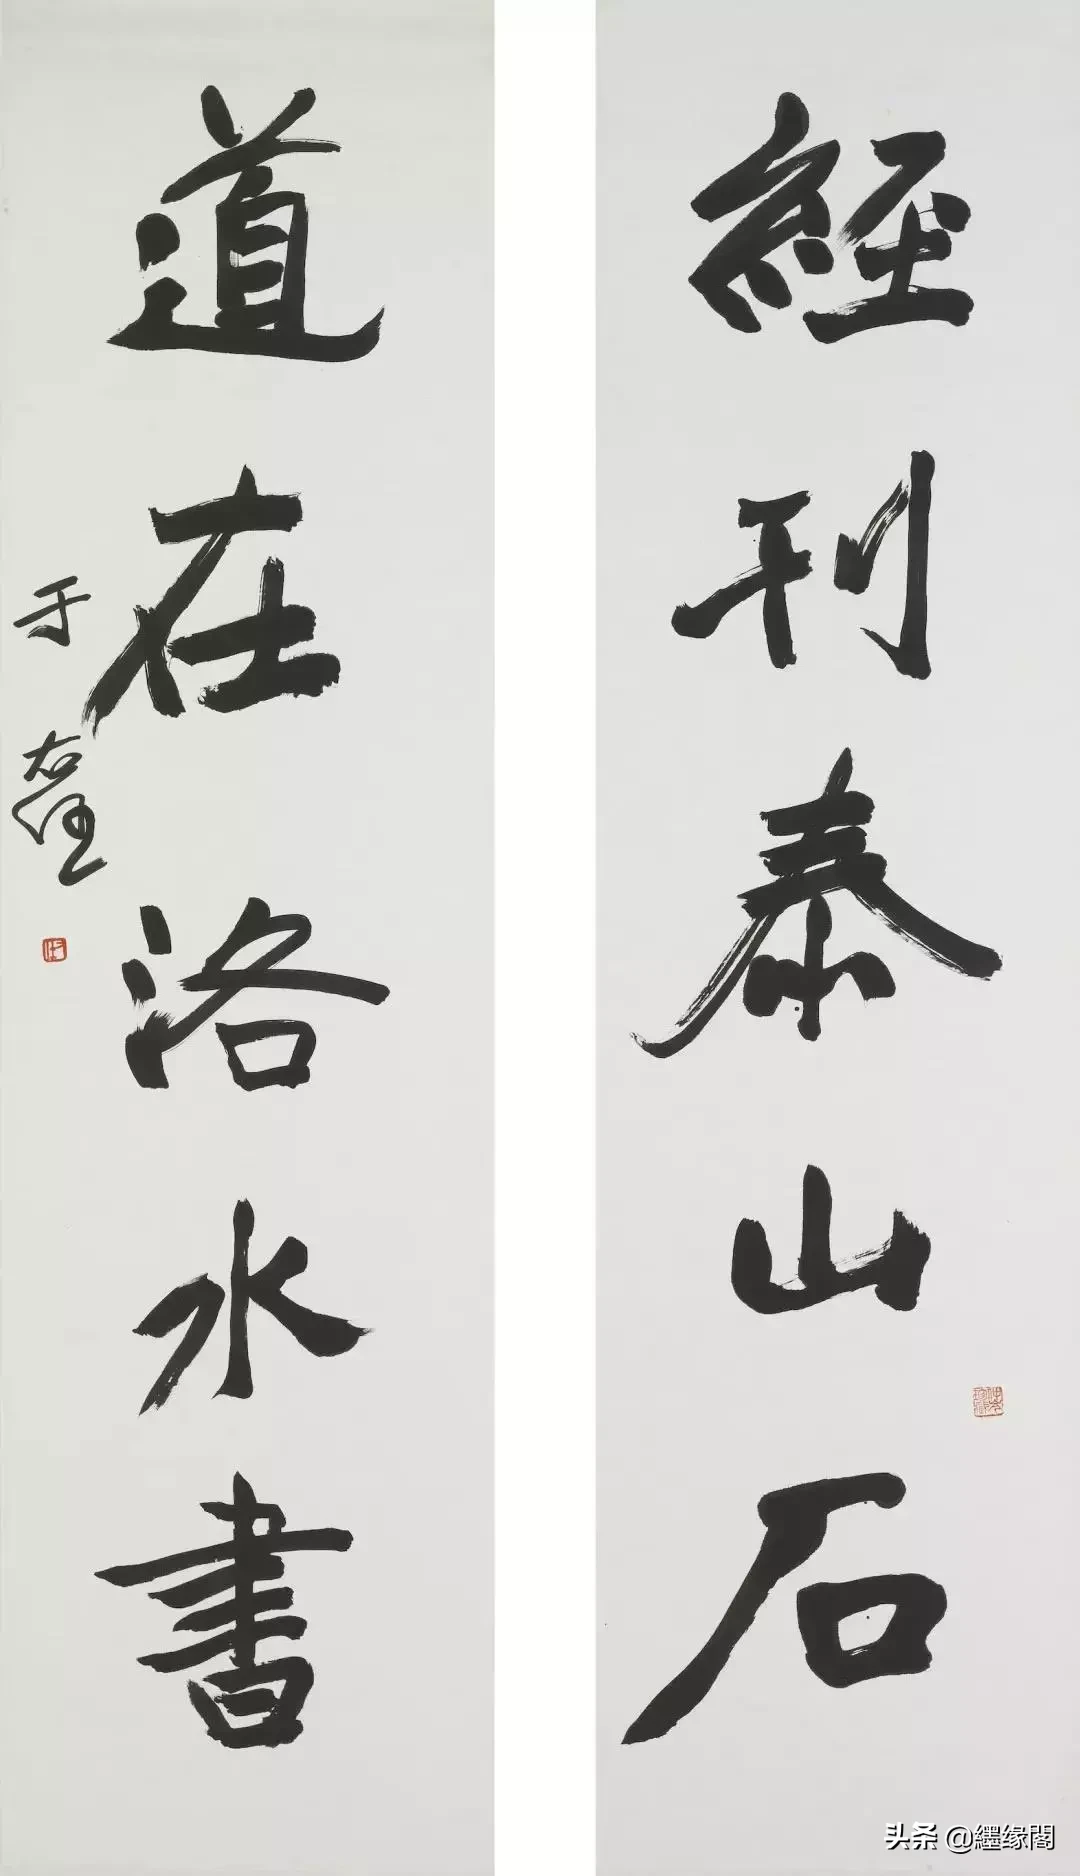 經刊泰山石
道在洛水書
于右任
头条 @纆缘閣